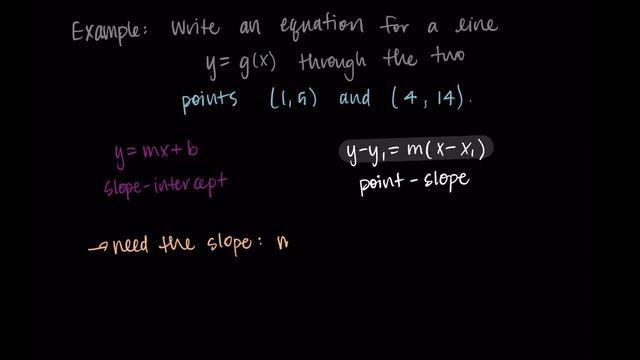 Example: Write an equation for a line
y = g(x) through the two
points (1,5) and (4,14).
y = mx + b
y-y₁ = m(x-x₁)
slope-intercept
point-slope
→ need the slope: m